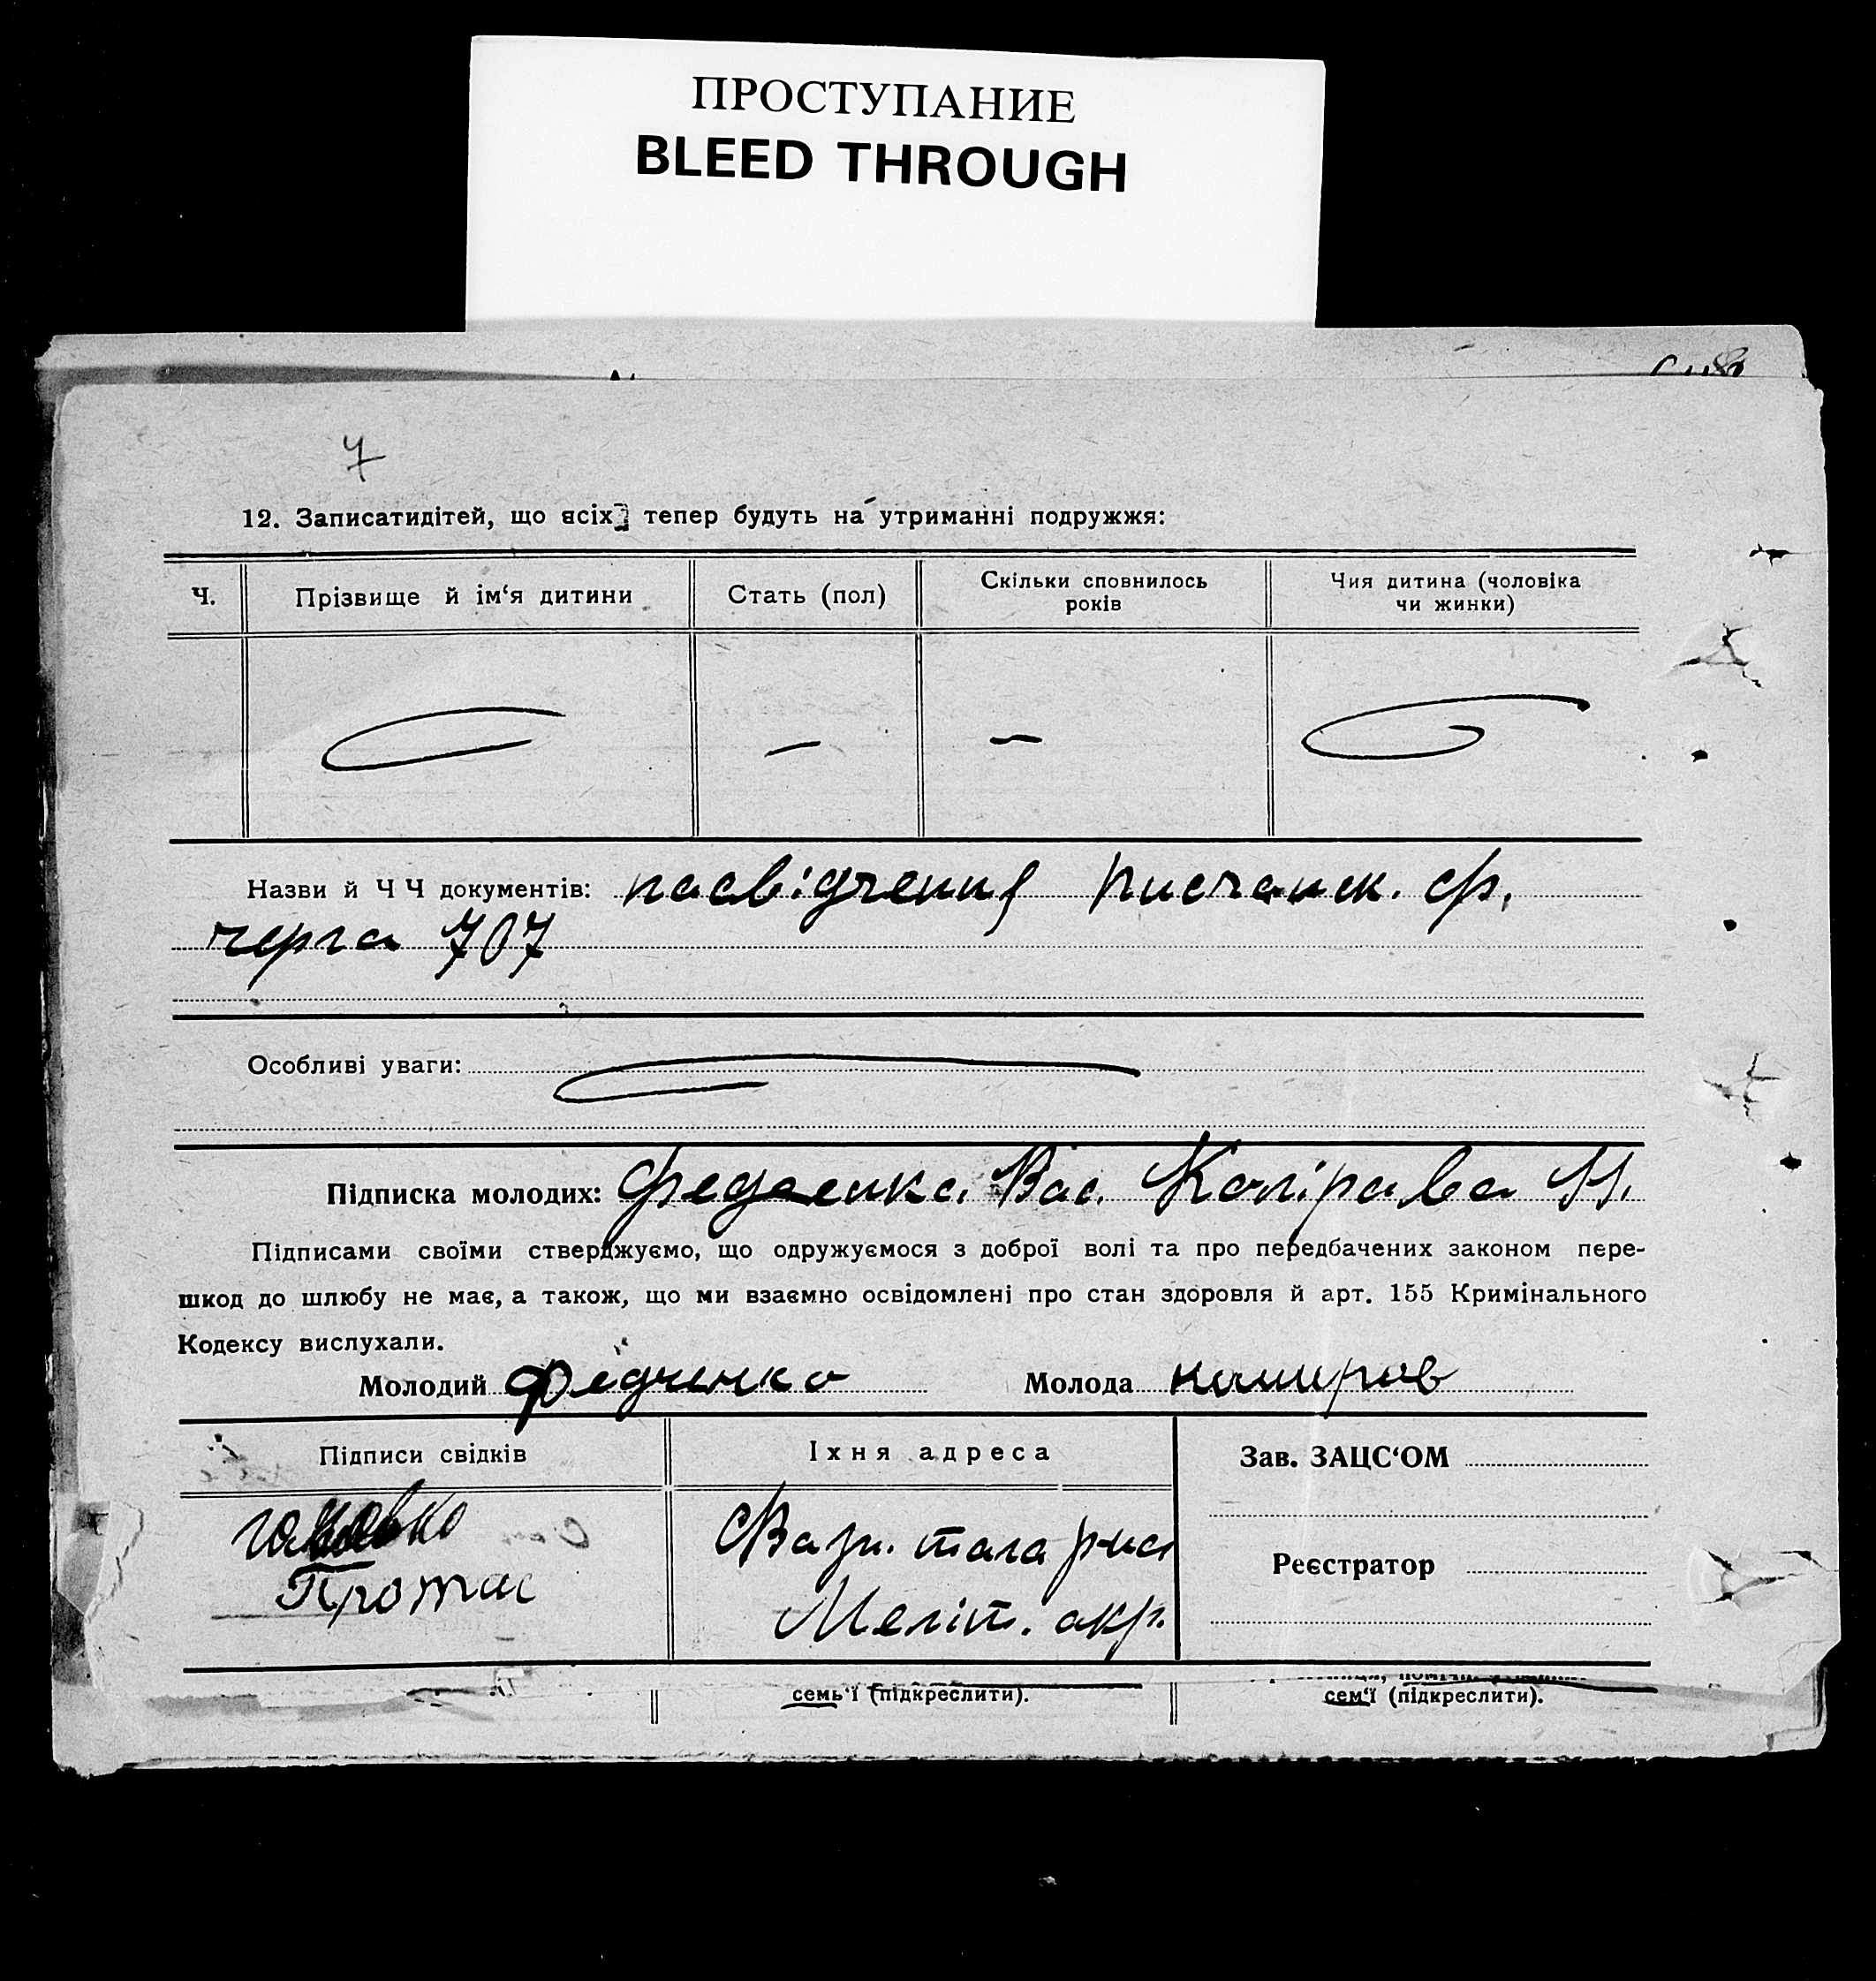 ПРОСТУПАНИЕ
BLEED THROUGH
7
12. Записатидітей, що всіх тепер будуть на утриманні подружжя:
Ч. Прізвище й ім‘я дитини Стать (пол) Скільки сповнилось років Чия дитина (чоловіка чи жинки)
— —
Назви й Ч Ч документів: посвідчення ф.
черга 707
Особливі уваги:
Підписка молодих: Вас. Н.
Підписами своїми стверджуємо, що одружуємося з доброї волі та про передбачених законом пере-
шкод до шлюбу не має, а також, що ми взаємно освідомлені про стан здоровля й арт. 155 Кримінального
Кодексу вислухали.
Молодий Федченко Молода коширов
Підписи свідків Їхня адреса Зав. ЗАЦС‘ОМ
Протас Меліт. окр. Реєстратор
семь‘ї (підкреслити). сем‘ї (підкреслити).